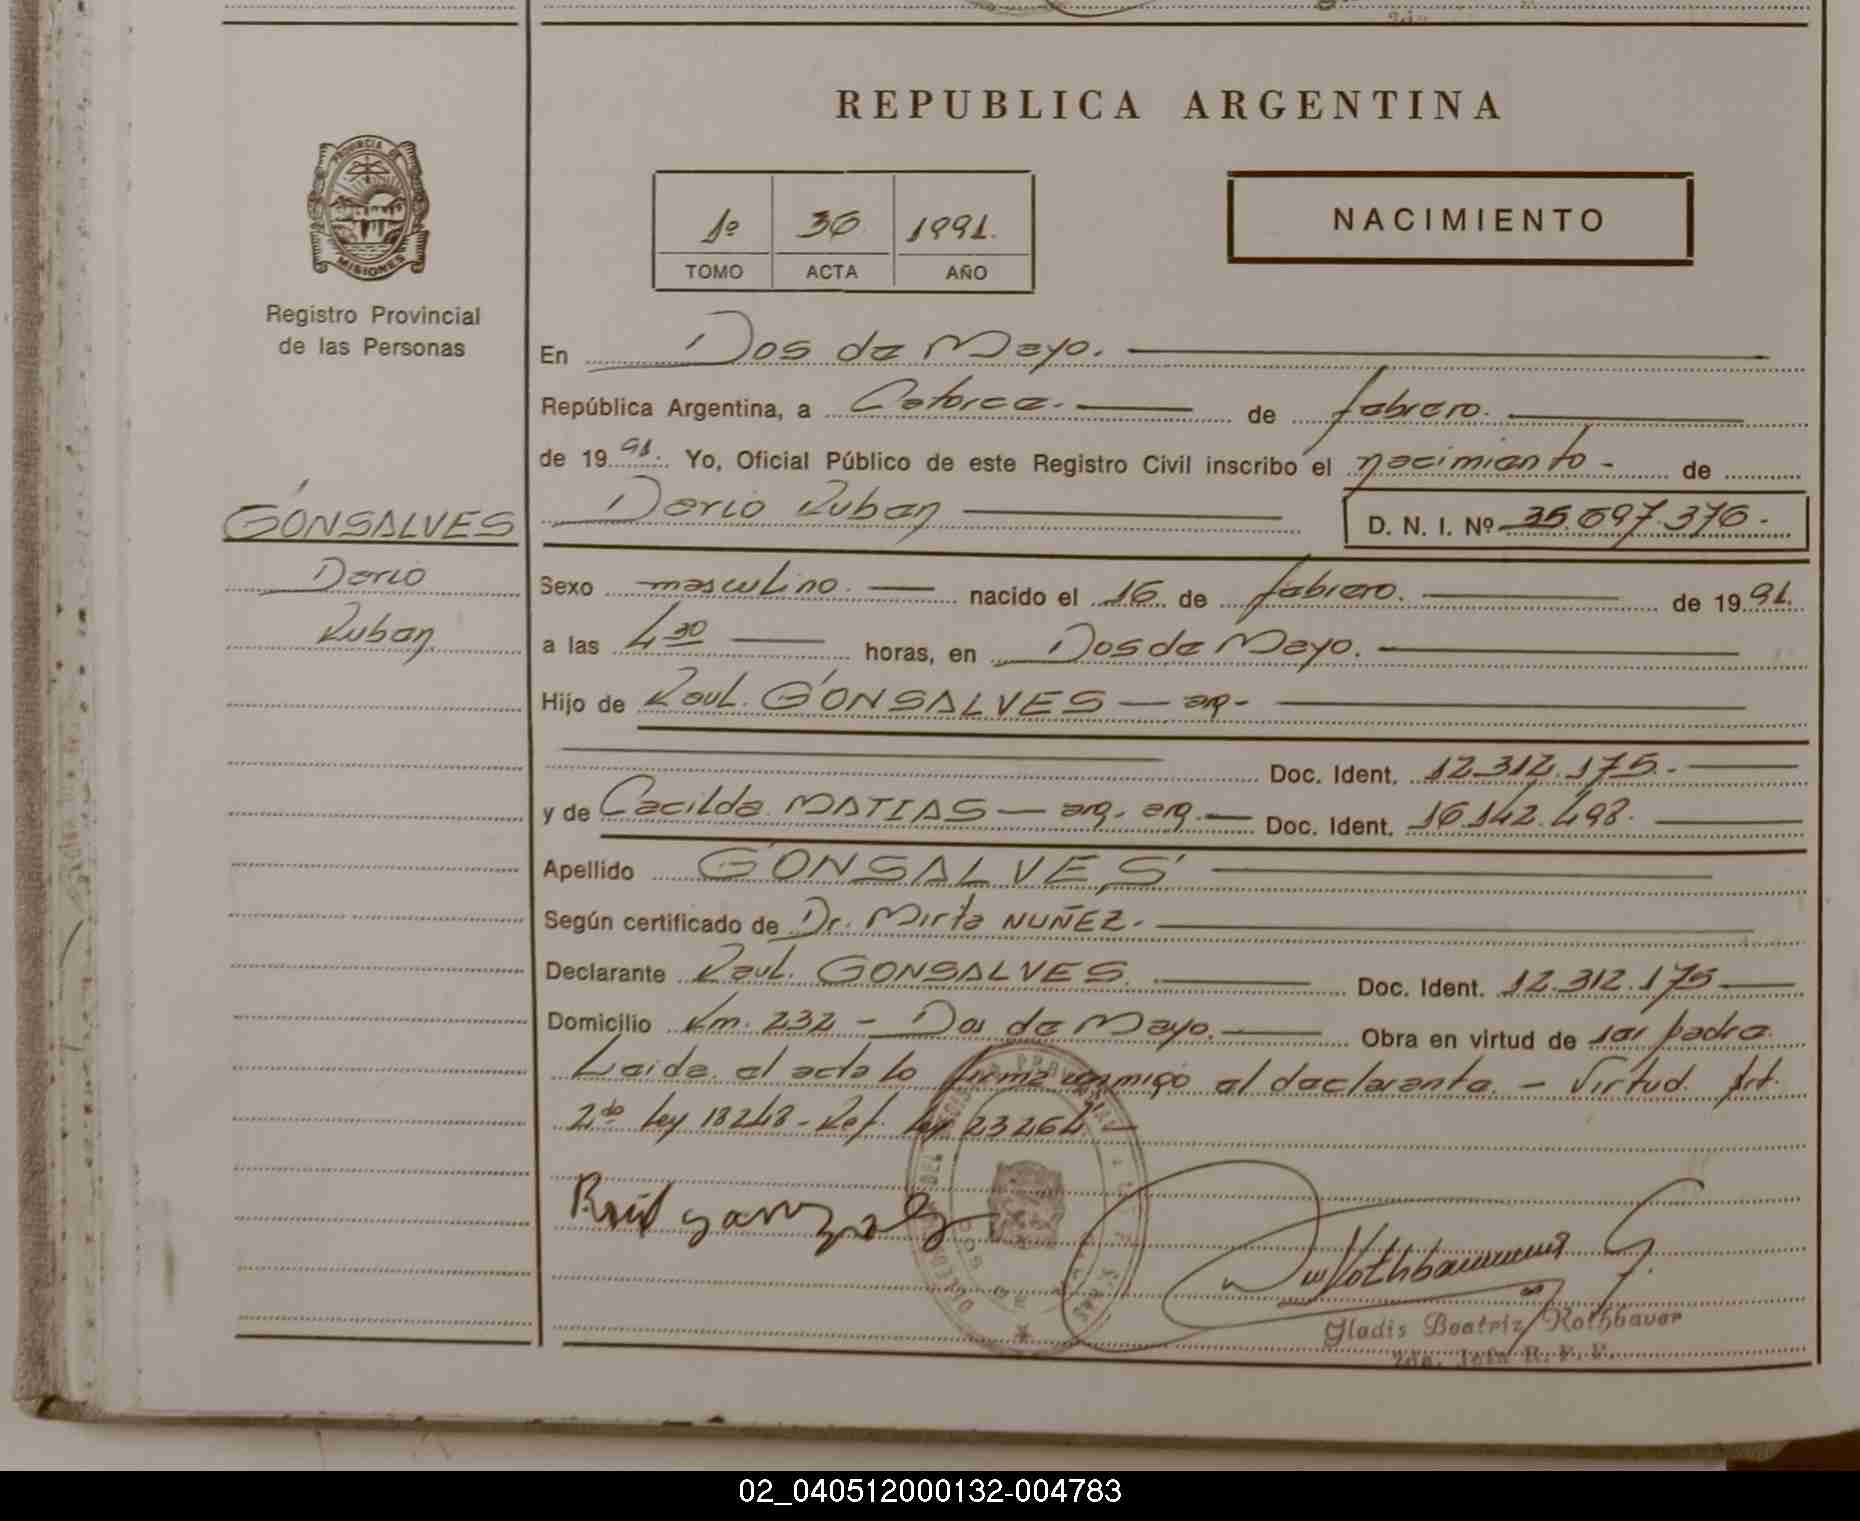 REPUBLICA ARGENTINA
PROVINCIA DE
MISIONES
Registro Provincial
de las Personas
1º 36 1991.
TOMO ACTA AÑO
NACIMIENTO
En Dos de Mayo.
República Argentina, a Catorce. de febrero.
de 1991. Yo, Oficial Público de este Registro Civil inscribo el nacimiento - de
GONSALVES
Dario
Ruben
Dario Ruben D. N. I. Nº 35.697.376.-
Sexo masculino. nacido el 16 de febrero. de 1991.
a las 4 30 horas, en Dos de Mayo.
Hijo de Raul. GONSALVES — arg-
Doc. Ident. 12.312.175.-
y de Cecilda MATIAS — arg. arg. Doc. Ident. 16.142.498.
Apellido GONSALVES
Según certificado de Dr. Mirta NUÑEZ.-
Declarante Raul. GONSALVES. Doc. Ident. 12.312.175
Domicilio Km. 232 - Dos de Mayo. Obra en virtud de ser padre.
Leida el acta lo firma conmigo el declarante. - Virtud. Art.
2do ley 18248 - Ref. ley 23264 -
Raúl
Gladis Beatriz Rothbauer
2da. Jefa R. P. P.
02_040512000132-004783